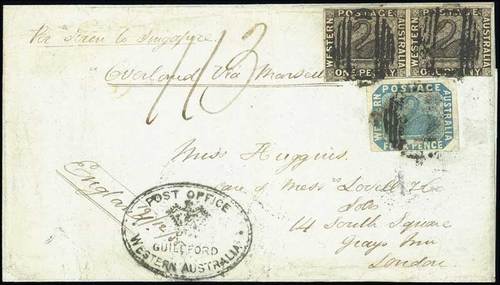 Per Steam to Singapore.
Overland Via Marseil
1/13
WESTERN
POSTAGE
AUSTRALIA
ONE PENNY
WESTERN
POSTAGE
AUSTRALIA
ONE PENNY
WESTERN
POSTAGE
AUSTRALIA
FOUR PENCE
Miss Huggins
Care of Messrs Lovell
14 South Square
Grays Inn
London
England
POST OFFICE
GUILDFORD
WESTERN AUSTRALIA